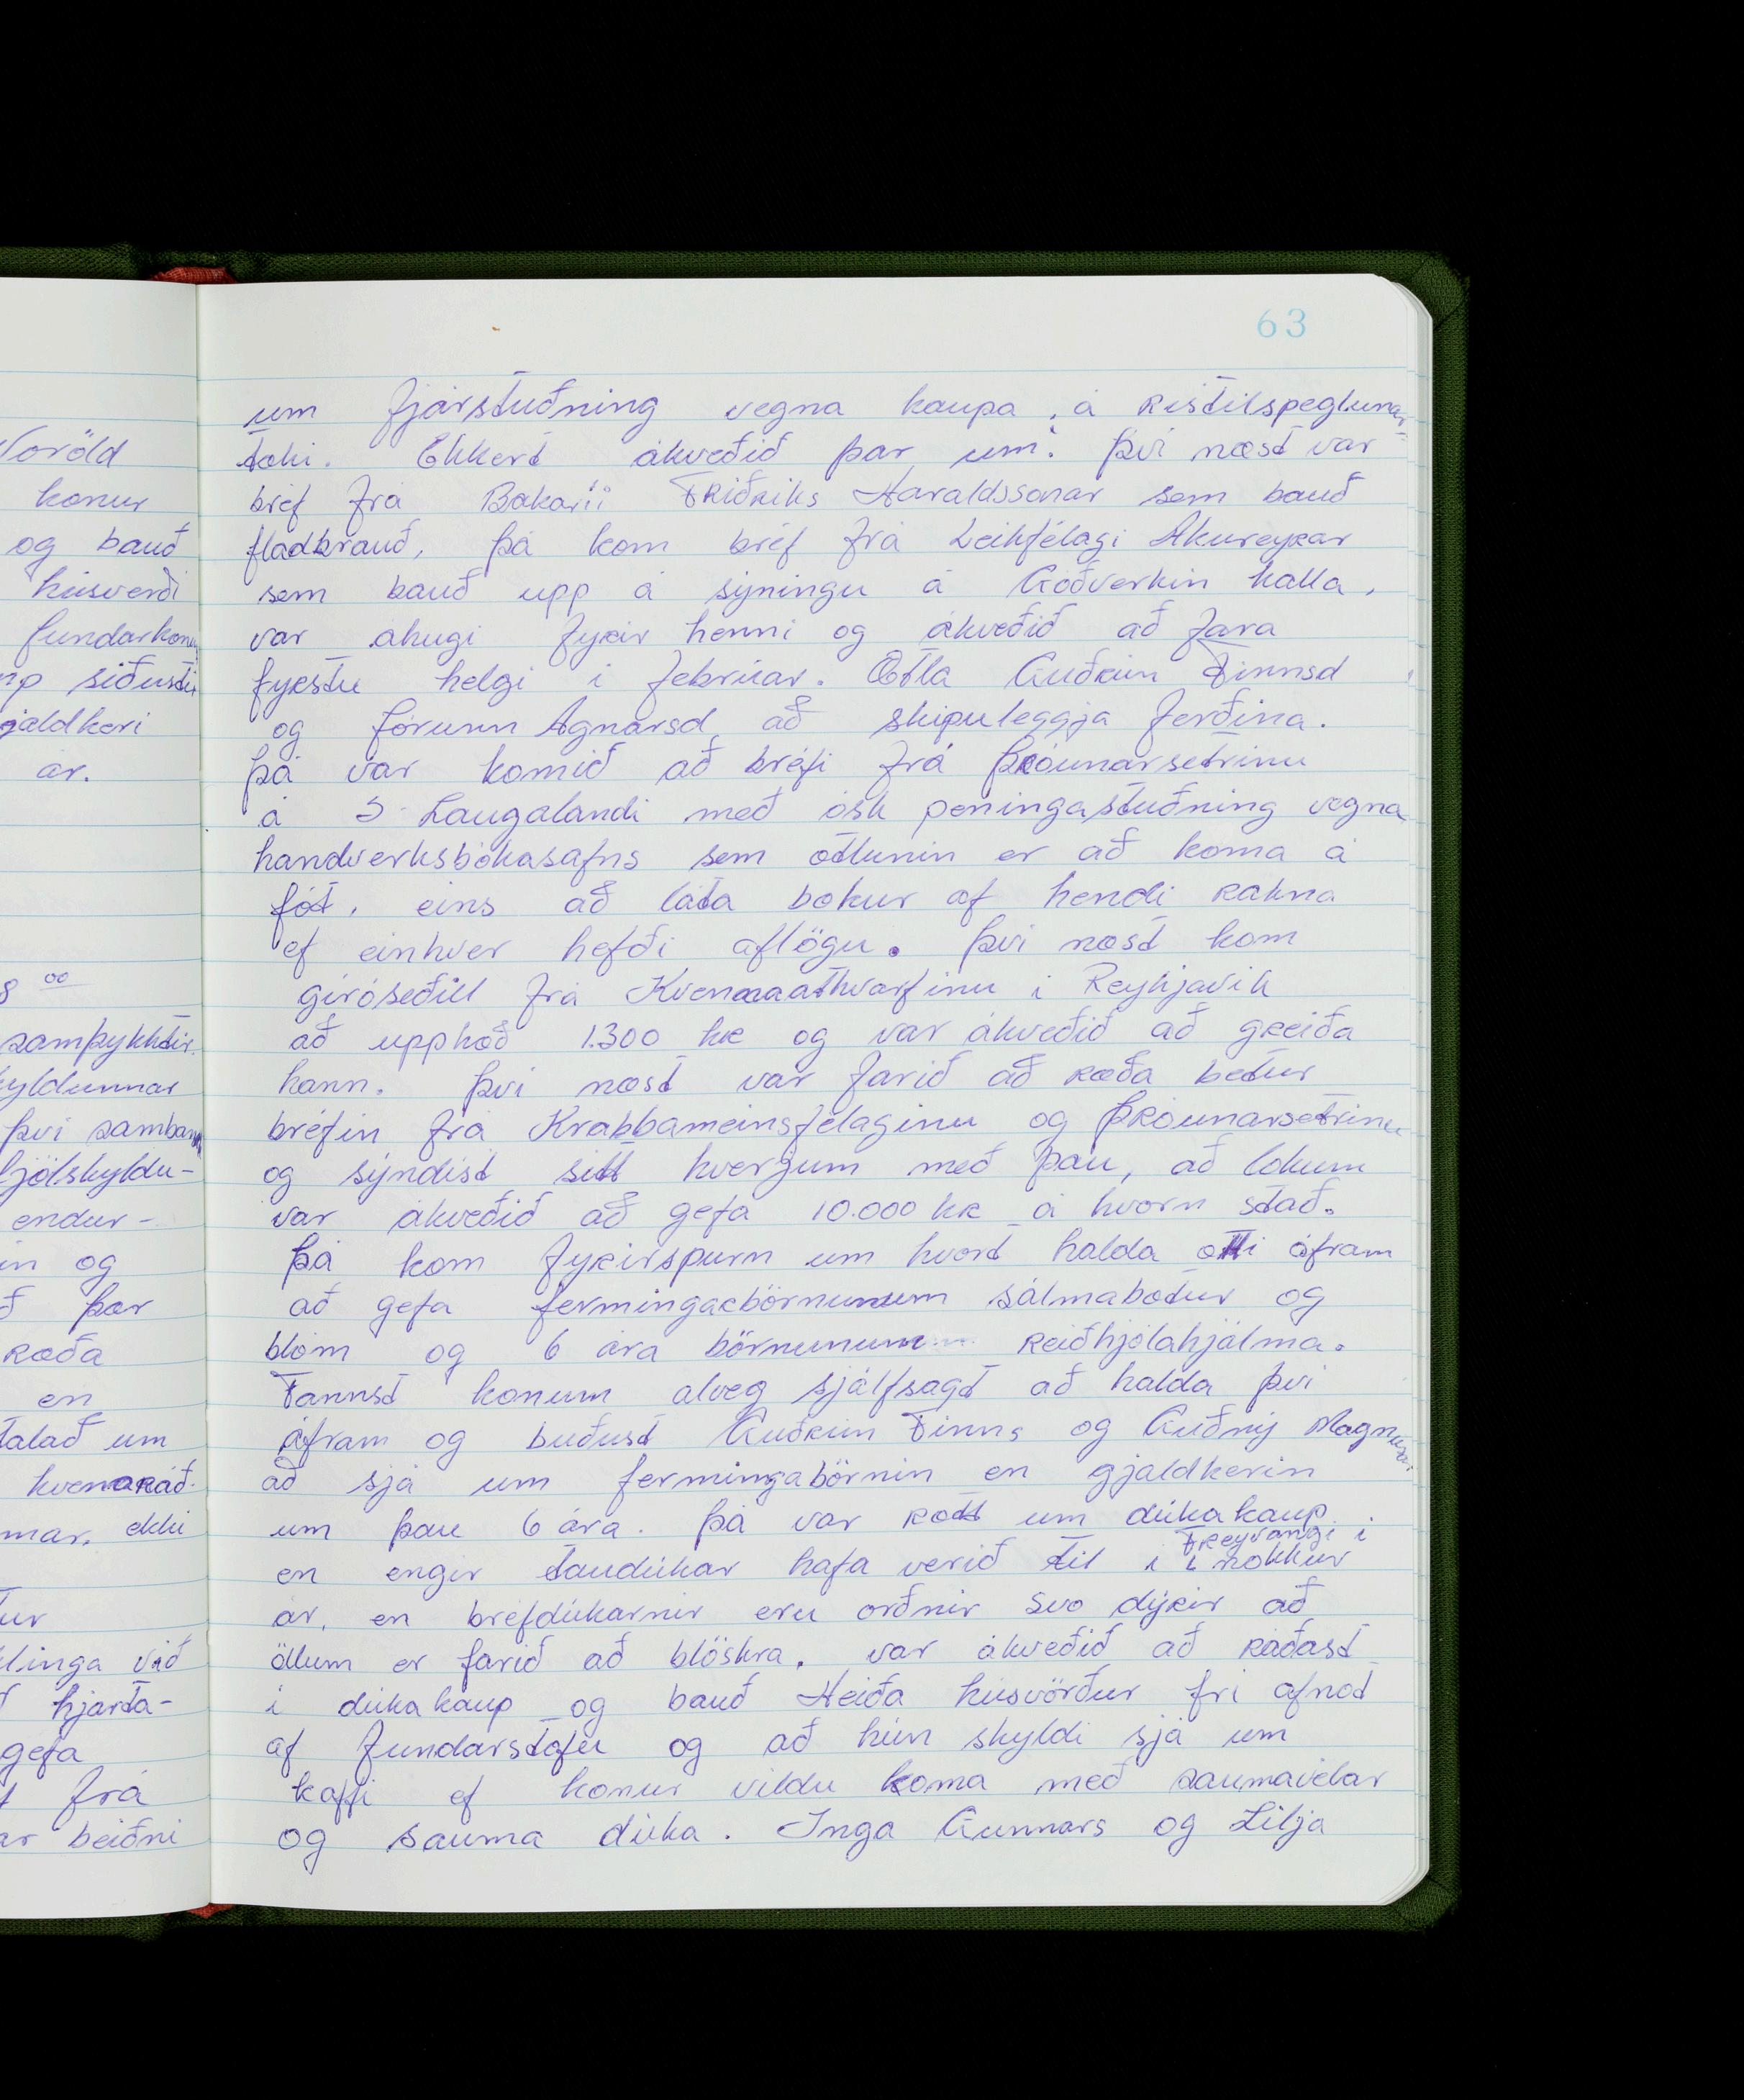 63
um fjárstuðning vegna kaupa á ristilspeglunar
tæki. Ekkert ákveðið þar um. Því næst var
bréf frá Bakaríi Friðriks Haraldssonar sem bauð
flatbrauð, þá kom bréf frá Leikfélagi Akureyrar
sem bauð upp á sýningu á Góðverkin kalla,
var áhugi fyrir henni og ákveðið að fara
fyrstu helgi í febrúar. Ætla Guðrún Finnsd
og Þórunn Agnarsd að skipuleggja ferðina.
Þá var komið að bréfi frá Þróunarsetrinu
á S-Laugalandi með ósk peningastuðning vegna
handverksbókasafns sem ætlunin er að koma á
fót, eins að láta bækur af hendi rakna
ef einhver hefði aflögu. Því næst kom
gíróseðill frá Kvennaathvarfinu í Reykjavík
að upphæð 1.300 kr og var ákveðið að greiða
hann. Því næst var farið að ræða betur
bréfin frá Krabbameinsfélaginu og Þróunarsetrinu
og sýndist sitt hverjum með þau, að lokum
var ákveðið að gefa 10.000 kr á hvorn stað.
Þá kom fyrirspurn um hvort halda ætti áfram
að gefa fermingarbörnunum sálmabækur og
blóm og 6 ára börnunum reiðhjólahjálma.
Fannst konum alveg sjálfsagt að halda því
áfram og buðust Guðrún Finns og Guðný Magnúsar
að sjá um fermingabörnin en gjaldkerin
um þau 6 ára. Þá var rætt um dúkakaup
Freyvangi í
en engir taudúkar hafa verið til í nokkur
ár, en bréfdúkarnir eru orðnir svo dýrir að
öllum er farið að blöskra, var ákveðið að ráðast
í dúkakaup og bauð Heiða húsvörður frí afnot
af fundarstofu og að hún skyldi sjá um
kaffi ef konur vildu koma með saumavélar
og sauma dúka. Inga Gunnars og Lilja
konur
og bauð
húsverði
fundarkonu
síðustu
gjaldkeri
ár.
8 00
samþykktir
því
endur-
og
þar
ræða
en
talað um
ekki
við
hjarta-
gefa
frá
beiðni